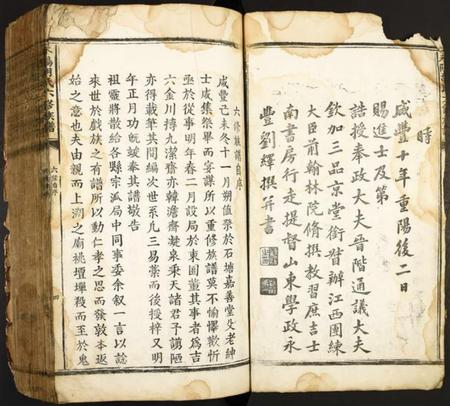 時
咸豐十年重陽後二日
賜進士及第
誥授奉政大夫晉階通議大夫
欽加三品京堂銜督辦江西團練
大臣前翰林院修撰教習庶吉士
南書房行走提督山東學政永
豐劉繹撰并書
六修族譜自序
咸豐己未冬十一月朔值祭於石塘嘉善堂父老紳
士咸集祭畢而妥謀所以重修族譜莫不愉懌歡忻
亟於從事明年春二月設局於東園董其事者為吉
六金川摶九潔齋亦韓澹齋凝泉乘天諸君予謭陋
亦得載筆其間編次世系凡三易藁而後授梓又明
年正月功竣奉其譜敬告
祖靈將散給各縣宗派局中同事委余叙一言以諗
來世於戲族之有譜所以動仁孝之思而發敦本返
始之意也夫由親而上溯之廟祧壇墠殺而至於鬼
六修族譜